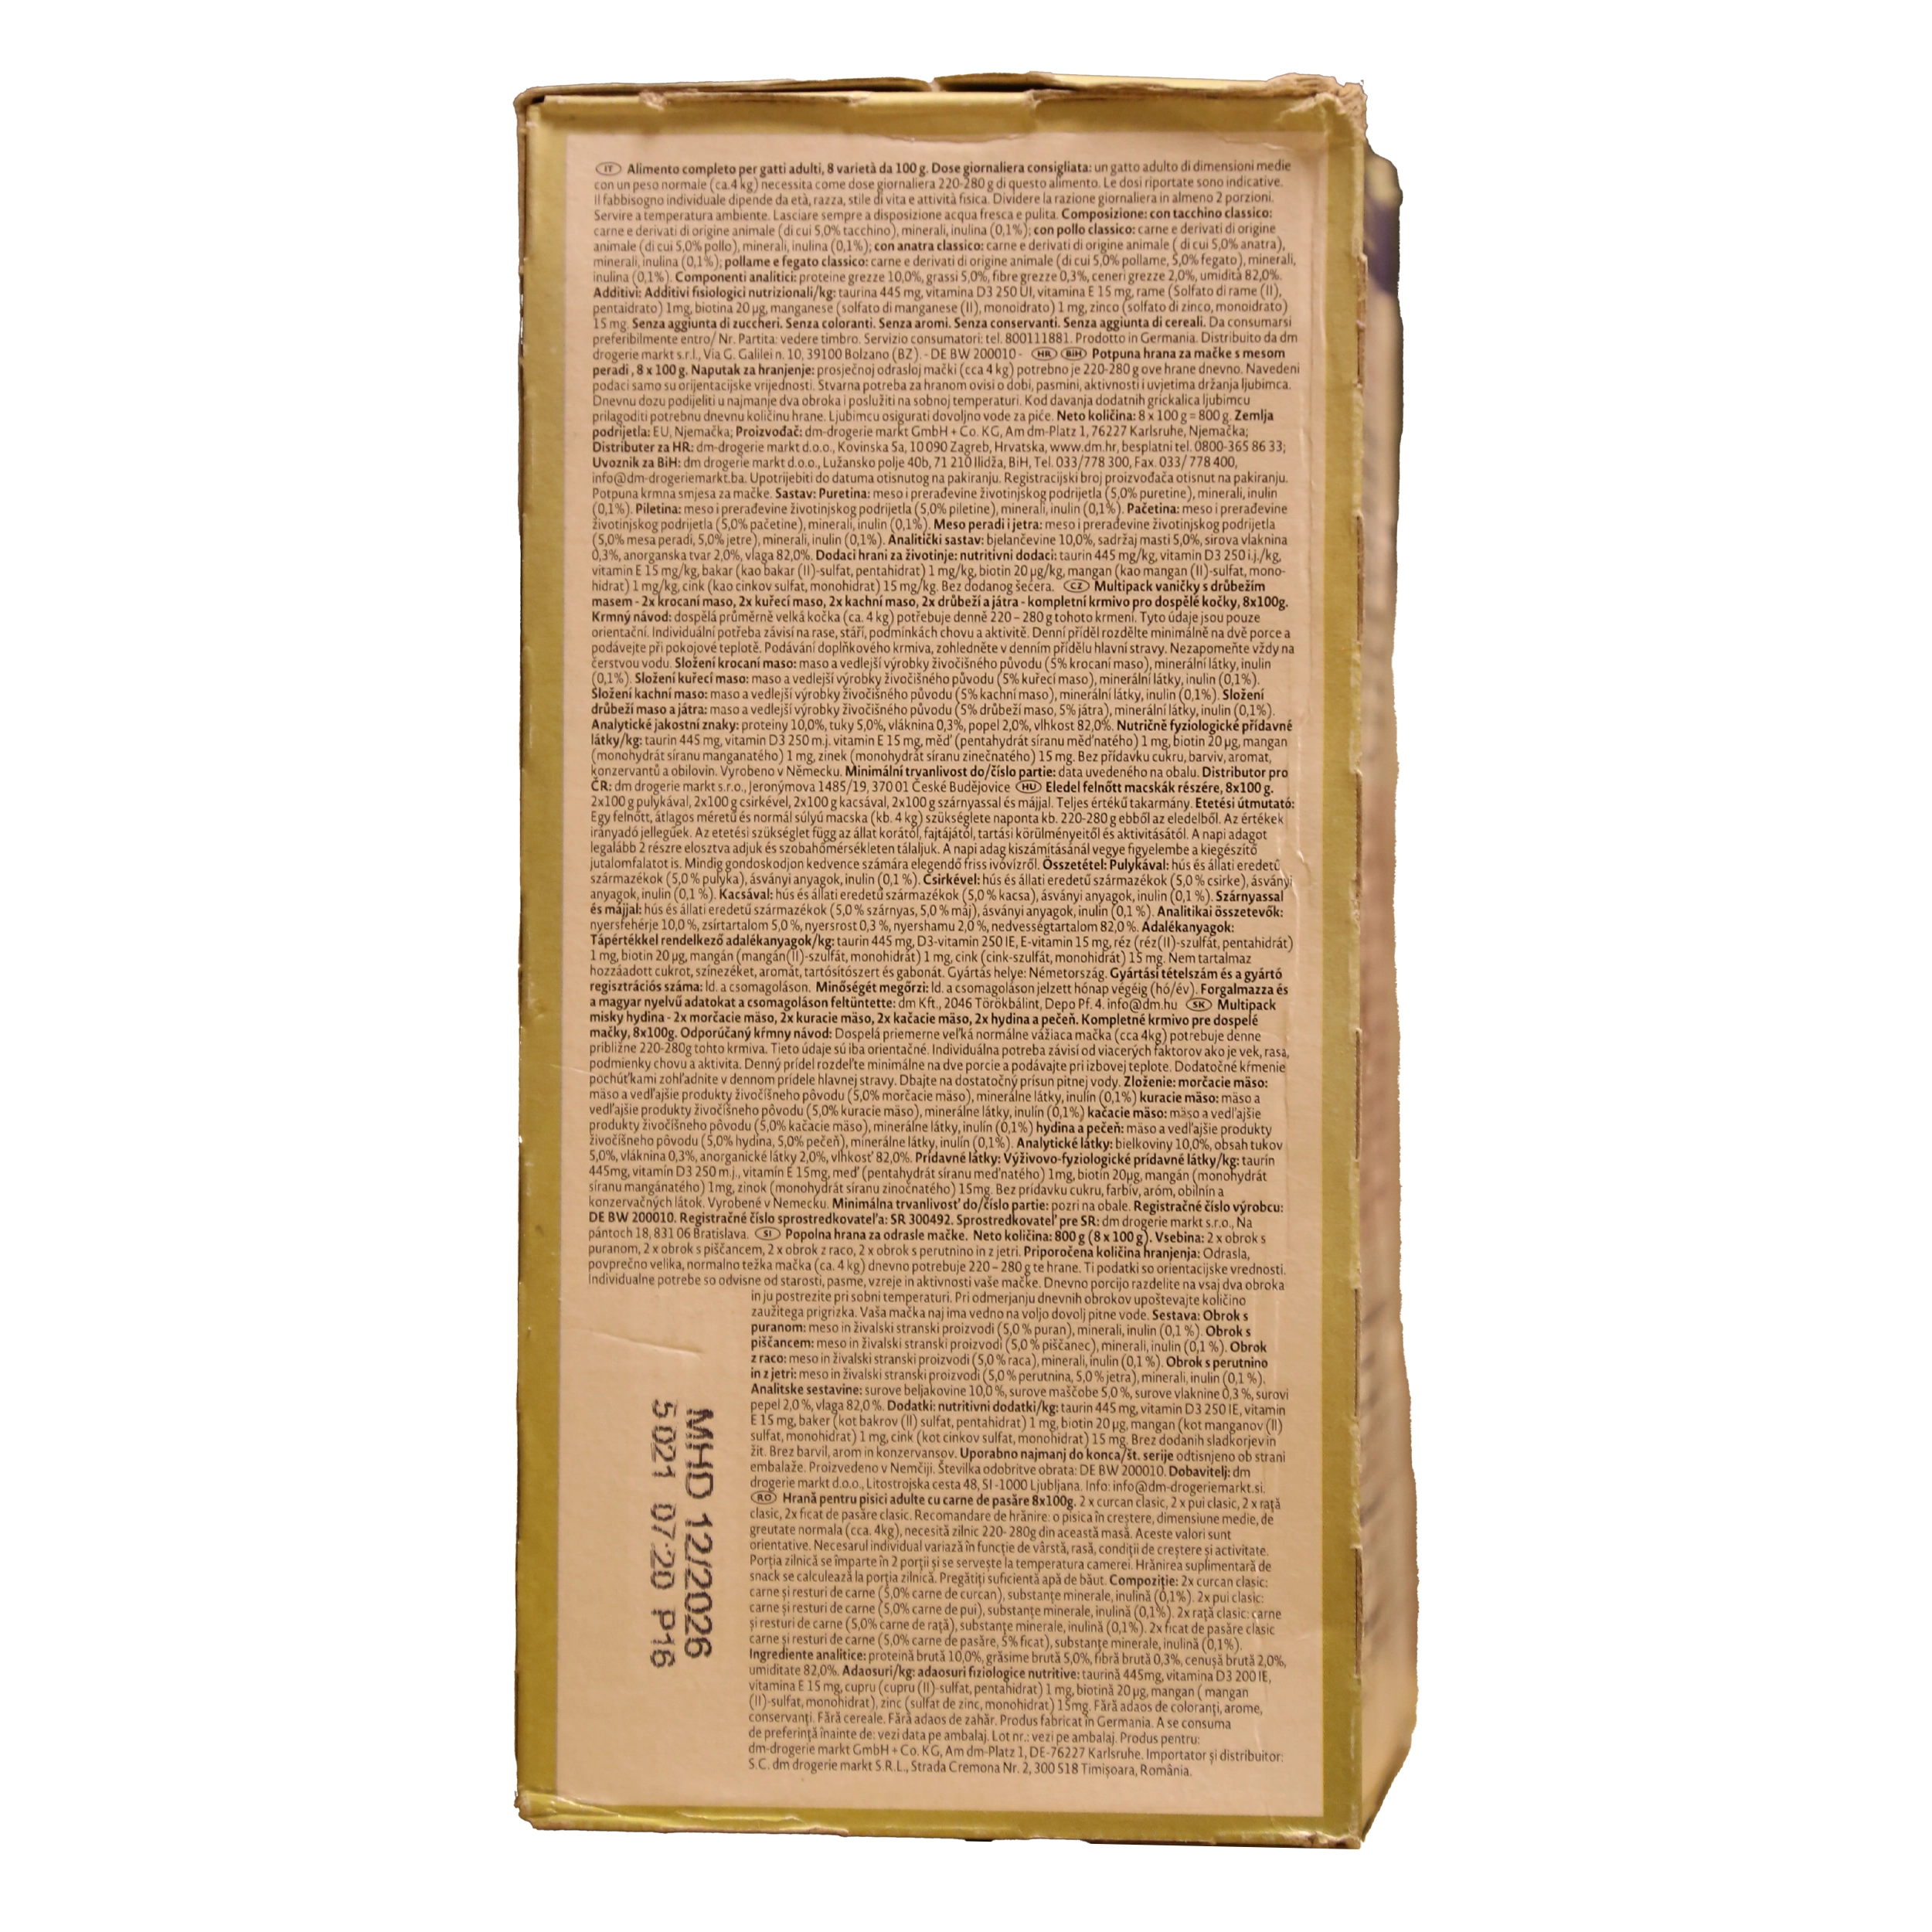 IT Alimento completo per gatti adulti, 8 varietà da 100 g. Dose giornaliera consigliata: un gatto adulto di dimensioni medie
con un peso normale (ca.4 kg) necessita come dose giornaliera 220-280 g di questo alimento. Le dosi riportate sono indicative.
Il fabbisogno individuale dipende da età, razza, stile di vita e attività fisica. Dividere la razione giornaliera in almeno 2 porzioni.
Servire a temperatura ambiente. Lasciare sempre a disposizione acqua fresca e pulita. Composizione: con tacchino classico:
carne e derivati di origine animale (di cui 5,0% tacchino), minerali, inulina (0,1%); con pollo classico: carne e derivati di origine
animale (di cui 5,0% pollo), minerali, inulina (0,1%); con anatra classico: carne e derivati di origine animale ( di cui 5,0% anatra),
minerali, inulina (0,1%); pollame e fegato classico: carne e derivati di origine animale (di cui 5,0% pollame, 5,0% fegato), minerali,
inulina (0,1%). Componenti analitici: proteine grezze 10,0%, grassi 5,0%, fibre grezze 0,3%, ceneri grezze 2,0%, umidità 82,0%.
Additivi: Additivi fisiologici nutrizionali/kg: taurina 445 mg, vitamina D3 250 UI, vitamina E 15 mg, rame (Solfato di rame (II),
pentaidrato) 1mg, biotina 20 µg, manganese (solfato di manganese (II), monoidrato) 1 mg, zinco (solfato di zinco, monoidrato)
15 mg. Senza aggiunta di zuccheri. Senza coloranti. Senza aromi. Senza conservanti. Senza aggiunta di cereali. Da consumarsi
preferibilmente entro/ Nr. Partita: vedere timbro. Servizio consumatori: tel. 800111881. Prodotto in Germania. Distribuito da dm
drogerie markt s.r.l., Via G. Galilei n. 10, 39100 Bolzano (BZ). - DE BW 200010 - HR BIH Potpuna hrana za mačke s mesom
peradi , 8 x 100 g. Naputak za hranjenje: prosječnoj odrasloj mački (cca 4 kg) potrebno je 220-280 g ove hrane dnevno. Navedeni
podaci samo su orijentacijske vrijednosti. Stvarna potreba za hranom ovisi o dobi, pasmini, aktivnosti i uvjetima držanja ljubimca.
Dnevnu dozu podijeliti u najmanje dva obroka i poslužiti na sobnoj temperaturi. Kod davanja dodatnih grickalica ljubimcu
prilagoditi potrebnu dnevnu količinu hrane. Ljubimcu osigurati dovoljno vode za piće. Neto količina: 8 x 100 g = 800 g. Zemlja
podrijetla: EU, Njemačka; Proizvođač: dm-drogerie markt GmbH + Co. KG, Am dm-Platz 1, 76227 Karlsruhe, Njemačka;
Distributer za HR: dm-drogerie markt d.o.o., Kovinska 5a, 10 090 Zagreb, Hrvatska, www.dm.hr, besplatni tel. 0800-365 86 33;
Uvoznik za BiH: dm drogerie markt d.o.o., Lužansko polje 40b, 71 210 Ilidža, BiH, Tel. 033/778 300, Fax. 033/ 778 400,
info@dm-drogeriemarkt.ba. Upotrijebiti do datuma otisnutog na pakiranju. Registracijski broj proizvođača otisnut na pakiranju.
Potpuna krmna smjesa za mačke. Sastav: Puretina: meso i prerađevine životinjskog podrijetla (5,0% puretine), minerali, inulin
(0,1%). Piletina: meso i prerađevine životinjskog podrijetla (5,0% piletine), minerali, inulin (0,1%). Pačetina: meso i prerađevine
životinjskog podrijetla (5,0% pačetine), minerali, inulin (0,1%). Meso peradi i jetra: meso i prerađevine životinjskog podrijetla
(5,0% mesa peradi, 5,0% jetre), minerali, inulin (0,1%). Analitički sastav: bjelančevine 10,0%, sadržaj masti 5,0%, sirova vlaknina
0,3%, anorganska tvar 2,0%, vlaga 82,0%. Dodaci hrani za životinje: nutritivni dodaci: taurin 445 mg/kg, vitamin D3 250 i.j./kg,
vitamin E 15 mg/kg, bakar (kao bakar (II)-sulfat, pentahidrat) 1 mg/kg, biotin 20 µg/kg, mangan (kao mangan (II)-sulfat, mono-
hidrat) 1 mg/kg, cink (kao cinkov sulfat, monohidrat) 15 mg/kg. Bez dodanog šećera. CZ Multipack vaničky s drůbežím
masem - 2x krocaní maso, 2x kuřecí maso, 2x kachní maso, 2x drůbeží a játra - kompletní krmivo pro dospělé kočky, 8x100g.
Krmný návod: dospělá průměrně velká kočka (ca. 4 kg) potřebuje denně 220 – 280 g tohoto krmení. Tyto údaje jsou pouze
orientační. Individuální potřeba závisí na rase, stáří, podmínkách chovu a aktivitě. Denní příděl rozdělte minimálně na dvě porce a
podávejte při pokojové teplotě. Podávání doplňkového krmiva, zohledněte v denním přídělu hlavní stravy. Nezapomeňte vždy na
čerstvou vodu. Složení krocaní maso: maso a vedlejší výrobky živočišného původu (5% krocaní maso), minerální látky, inulin
(0,1%). Složení kuřecí maso: maso a vedlejší výrobky živočišného původu (5% kuřecí maso), minerální látky, inulin (0,1%).
Složení kachní maso: maso a vedlejší výrobky živočišného původu (5% kachní maso), minerální látky, inulin (0,1%). Složení
drůbeží maso a játra: maso a vedlejší výrobky živočišného původu (5% drůbeží maso, 5% játra), minerální látky, inulin (0,1%).
Analytické jakostní znaky: proteiny 10,0%, tuky 5,0%, vláknina 0,3%, popel 2,0%, vlhkost 82,0%. Nutričně fyziologické přídavné
látky/kg: taurin 445 mg, vitamin D3 250 m.j. vitamin E 15 mg, měď (pentahydrát síranu měďnatého) 1 mg, biotin 20 µg, mangan
(monohydrát síranu manganatého) 1 mg, zinek (monohydrát síranu zinečnatého) 15 mg. Bez přídavku cukru, barviv, aromat,
konzervantů a obilovin. Vyrobeno v Německu. Minimální trvanlivost do/číslo partie: data uvedeného na obalu. Distributor pro
ČR: dm drogerie markt s.r.o., Jeronýmova 1485/19, 370 01 České Budějovice HU Eledel felnőtt macskák részére, 8x100 g.
2x100 g pulykával, 2x100 g csirkével, 2x100 g kacsával, 2x100 g szárnyassal és májjal. Teljes értékű takarmány. Etetési útmutató:
Egy felnőtt, átlagos méretű és normál súlyú macska (kb. 4 kg) szükséglete naponta kb. 220-280 g ebből az eledelből. Az értékek
irányadó jellegűek. Az etetési szükséglet függ az állat korától, fajtájától, tartási körülményeitől és aktivitásától. A napi adagot
legalább 2 részre elosztva adjuk és szobahőmérsékleten tálaljuk. A napi adag kiszámításánál vegye figyelembe a kiegészítő
jutalomfalatot is. Mindig gondoskodjon kedvence számára elegendő friss ivóvízről. Összetétel: Pulykával: hús és állati eredetű
származékok (5,0 % pulyka), ásványi anyagok, inulin (0,1 %). Csirkével: hús és állati eredetű származékok (5,0 % csirke), ásványi
anyagok, inulin (0,1 %). Kacsával: hús és állati eredetű származékok (5,0 % kacsa), ásványi anyagok, inulin (0,1 %). Szárnyassal
és májjal: hús és állati eredetű származékok (5,0 % szárnyas, 5,0 % máj), ásványi anyagok, inulin (0,1 %). Analitikai összetevők:
nyersfehérje 10,0 %, zsírtartalom 5,0 %, nyersrost 0,3 %, nyershamu 2,0 %, nedvességtartalom 82,0 %. Adalékanyagok:
Tápértékkel rendelkező adalékanyagok/kg: taurin 445 mg, D3-vitamin 250 IE, E-vitamin 15 mg, réz (réz(II)-szulfát, pentahidrát)
1 mg, biotin 20 µg, mangán (mangán(II)-szulfát, monohidrát) 1 mg, cink (cink-szulfát, monohidrát) 15 mg. Nem tartalmaz
hozzáadott cukrot, színezéket, aromát, tartósítószert és gabonát. Gyártás helye: Németország. Gyártási tételszám és a gyártó
regisztrációs száma: ld. a csomagoláson. Minőségét megőrzi: ld. a csomagoláson jelzett hónap végéig (hó/év). Forgalmazza és
a magyar nyelvű adatokat a csomagoláson feltüntette: dm Kft., 2046 Törökbálint, Depo Pf. 4. info@dm.hu SK Multipack
misky hydina - 2x morčacie mäso, 2x kuracie mäso, 2x kačacie mäso, 2x hydina a pečeň. Kompletné krmivo pre dospelé
mačky, 8x100g. Odporúčaný kŕmny návod: Dospelá priemerne veľká normálne vážiaca mačka (cca 4kg) potrebuje denne
približne 220-280g tohto krmiva. Tieto údaje sú iba orientačné. Individuálna potreba závisí od viacerých faktorov ako je vek, rasa,
podmienky chovu a aktivita. Denný prídel rozdeľte minimálne na dve porcie a podávajte pri izbovej teplote. Dodatočné kŕmenie
pochúťkami zohľadnite v dennom prídele hlavnej stravy. Dbajte na dostatočný prísun pitnej vody. Zloženie: morčacie mäso:
mäso a vedľajšie produkty živočíšneho pôvodu (5,0% morčacie mäso), minerálne látky, inulín (0,1%) kuracie mäso: mäso a
vedľajšie produkty živočíšneho pôvodu (5,0% kuracie mäso), minerálne látky, inulín (0,1%) kačacie mäso: mäso a vedľajšie
produkty živočíšneho pôvodu (5,0% kačacie mäso), minerálne látky, inulín (0,1%) hydina a pečeň: mäso a vedľajšie produkty
živočíšneho pôvodu (5,0% hydina, 5,0% pečeň), minerálne látky, inulín (0,1%). Analytické látky: bielkoviny 10,0%, obsah tukov
5,0%, vláknina 0,3%, anorganické látky 2,0%, vlhkosť 82,0%. Prídavné látky: Výživovo-fyziologické prídavné látky/kg: taurín
445mg, vitamín D3 250 m.j., vitamín E 15mg, meď (pentahydrát síranu meďnatého) 1mg, biotín 20µg, mangán (monohydrát
síranu mangánatého) 1mg, zinok (monohydrát síranu zinočnatého) 15mg. Bez prídavku cukru, farbív, aróm, obilnín a
konzervačných látok. Vyrobené v Nemecku. Minimálna trvanlivosť do/číslo partie: pozri na obale. Registračné číslo výrobcu:
DE BW 200010. Registračné číslo sprostredkovateľa: SR 300492. Sprostredkovateľ pre SR: dm drogerie markt s.r.o., Na
pántoch 18, 831 06 Bratislava. SI Popolna hrana za odrasle mačke. Neto količina: 800 g (8 x 100 g). Vsebina: 2 x obrok s
puranom, 2 x obrok s piščancem, 2 x obrok z raco, 2 x obrok s perutnino in z jetri. Priporočena količina hranjenja: Odrasla,
povprečno velika, normalno težka mačka (ca. 4 kg) dnevno potrebuje 220 – 280 g te hrane. Ti podatki so orientacijske vrednosti.
Individualne potrebe so odvisne od starosti, pasme, vzreje in aktivnosti vaše mačke. Dnevno porcijo razdelite na vsaj dva obroka
in ju postrezite pri sobni temperaturi. Pri odmerjanju dnevnih obrokov upoštevajte količino
zaužitega prigrizka. Vaša mačka naj ima vedno na voljo dovolj pitne vode. Sestava: Obrok s
puranom: meso in živalski stranski proizvodi (5,0 % puran), minerali, inulin (0,1 %). Obrok s
piščancem: meso in živalski stranski proizvodi (5,0 % piščanec), minerali, inulin (0,1 %). Obrok
z raco: meso in živalski stranski proizvodi (5,0 % raca), minerali, inulin (0,1 %). Obrok s perutnino
in z jetri: meso in živalski stranski proizvodi (5,0 % perutnina, 5,0 % jetra), minerali, inulin (0,1 %).
Analitske sestavine: surove beljakovine 10,0 %, surove maščobe 5,0 %, surove vlaknine 0,3 %, surovi
pepel 2,0 %, vlaga 82,0 %. Dodatki: nutritivni dodatki/kg: taurin 445 mg, vitamin D3 250 IE, vitamin
E 15 mg, baker (kot bakrov (II) sulfat, pentahidrat) 1 mg, biotin 20 µg, mangan (kot manganov (II)
sulfat, monohidrat) 1 mg, cink (kot cinkov sulfat, monohidrat) 15 mg. Brez dodanih sladkorjev in
žit. Brez barvil, arom in konzervansov. Uporabno najmanj do konca/št. serije odtisnjeno ob strani
embalaže. Proizvedeno v Nemčiji. Številka odobritve obrata: DE BW 200010. Dobavitelj: dm
drogerie markt d.o.o., Litostrojska cesta 48, SI -1000 Ljubljana. Info: info@dm-drogeriemarkt.si.
RO Hrană pentru pisici adulte cu carne de pasăre 8x100g. 2 x curcan clasic, 2 x pui clasic, 2 x rață
clasic, 2x ficat de pasăre clasic. Recomandare de hrănire: o pisica în creștere, dimensiune medie, de
greutate normala (cca. 4kg), necesită zilnic 220- 280g din această masă. Aceste valori sunt
orientative. Necesarul individual variază în funcție de vârstă, rasă, condiții de creștere și activitate.
Porția zilnică se împarte în 2 porții și se servește la temperatura camerei. Hrănirea suplimentară de
snack se calculează la porția zilnică. Pregătiți suficientă apă de băut. Compoziție: 2x curcan clasic:
carne și resturi de carne (5,0% carne de curcan), substanțe minerale, inulină (0,1%). 2x pui clasic:
carne și resturi de carne (5,0% carne de pui), substanțe minerale, inulină (0,1%). 2x rață clasic: carne
și resturi de carne (5,0% carne de rață), substanțe minerale, inulină (0,1%). 2x ficat de pasăre clasic
carne și resturi de carne (5,0% carne de pasăre, 5% ficat), substanțe minerale, inulină (0,1%).
Ingrediente analitice: proteină brută 10,0%, grăsime brută 5,0%, fibră brută 0,3%, cenușă brută 2,0%,
umiditate 82,0%. Adaosuri/kg: adaosuri fiziologice nutritive: taurină 445mg, vitamina D3 200 IE,
vitamina E 15 mg, cupru (cupru (II)-sulfat, pentahidrat) 1 mg, biotină 20 µg, mangan ( mangan
(II)-sulfat, monohidrat), zinc (sulfat de zinc, monohidrat) 15mg. Fără adaos de coloranți, arome,
conservanți. Fără cereale. Fără adaos de zahăr. Produs fabricat în Germania. A se consuma
de preferință înainte de: vezi data pe ambalaj. Lot nr.: vezi pe ambalaj. Produs pentru:
dm-drogerie markt GmbH + Co. KG, Am dm-Platz 1, DE-76227 Karlsruhe. Importator și distribuitor:
S.C. dm drogerie markt S.R.L., Strada Cremona Nr. 2, 300 518 Timișoara, România.
MHD 12/2026
5 021 07:20 P16